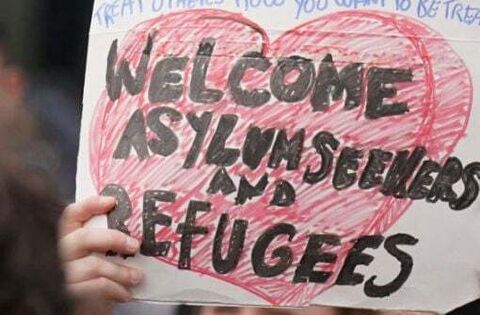 TREAT OTHERS HOW YOU WANT TO BE TREA
WELCOME
ASYLUM SEEKERS
AND
REFUGEES